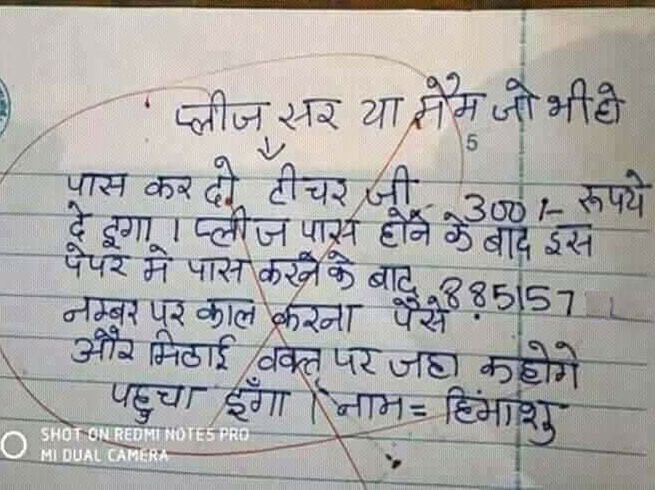 प्लीज सर या मैम जो भी हो
5
पास कर दो टीचर जी 300/- रूपये
दे दूगा । प्लीज पास होने के बाद इस
पेपर मे पास करने के बाद 885157
नम्बर पर काल करना पैसे
और मिठाई वक्त पर जहा कहोगे
पहुचा दूँगा । नाम = हिमांशु
SHOT ON REDMI NOTE5 PRO
MI DUAL CAMERA